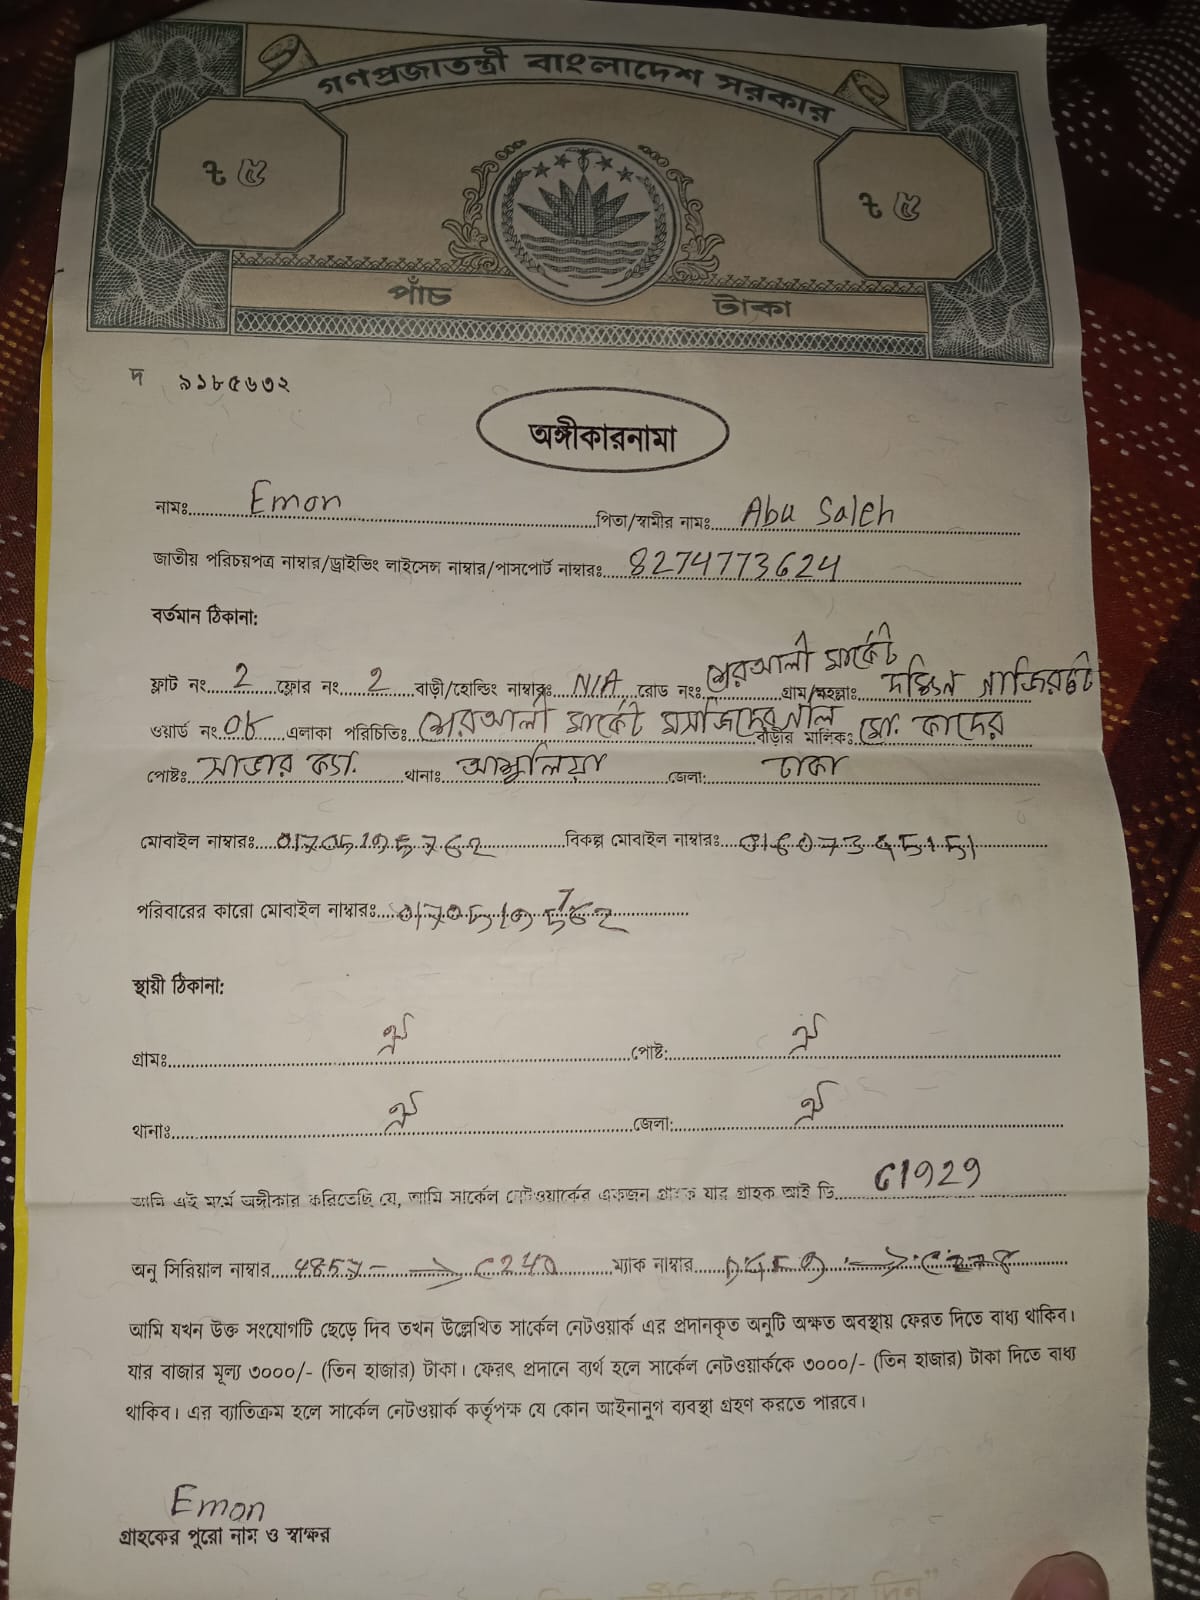 গণপ্রজাতন্ত্রী বাংলাদেশ সরকার
৳ ৫ ৳ ৫
পাঁচ টাকা
দ ৯১৮৫৬৩২
অঙ্গীকারনামা
নামঃ Emon পিতা/স্বামীর নামঃ Abu Saleh
জাতীয় পরিচয়পত্র নাম্বার/ড্রাইভিং লাইসেন্স নাম্বার/পাসপোর্ট নাম্বারঃ 8274773624
বর্তমান ঠিকানা:
ফ্লাট নং 2 ফ্লোর নং 2 বাড়ী/হোল্ডিং নাম্বারঃ N/A রোড নংঃ শেরআলী মার্কেট গ্রাম/মহল্লাঃ দক্ষিন
ওয়ার্ড নং এলাকা পরিচিতিঃ শেরআলী মার্কেট মসজিদের বাড়ীর মালিকঃ মো. কাদের
পোষ্টঃ সাভার ক্যা. থানাঃ আশুলিয়া জেলা: ঢাকা
মোবাইল নাম্বারঃ 01705195762 বিকল্প মোবাইল নাম্বারঃ
পরিবারের কারো মোবাইল নাম্বারঃ 01705195762
স্থায়ী ঠিকানা:
গ্রামঃ ঐ পোষ্ট: ঐ
থানাঃ ঐ জেলা: ঐ
আমি এই মর্মে অঙ্গীকার করিতেছি যে, আমি সার্কেল নেটওয়ার্কের একজন গ্রাহক যার গ্রাহক আই ডি C1929
অনু সিরিয়াল নাম্বার ম্যাক নাম্বার
আমি যখন উক্ত সংযোগটি ছেড়ে দিব তখন উল্লেখিত সার্কেল নেটওয়ার্ক এর প্রদানকৃত অনুটি অক্ষত অবস্থায় ফেরত দিতে বাধ্য থাকিব।
যার বাজার মূল্য ৩০০০/- (তিন হাজার) টাকা। ফেরৎ প্রদানে ব্যর্থ হলে সার্কেল নেটওয়ার্ককে ৩০০০/- (তিন হাজার) টাকা দিতে বাধ্য
থাকিব। এর ব্যতিক্রম হলে সার্কেল নেটওয়ার্ক কর্তৃপক্ষ যে কোন আইনানুগ ব্যবস্থা গ্রহণ করতে পারবে।
Emon
গ্রাহকের পুরো নাম ও স্বাক্ষর